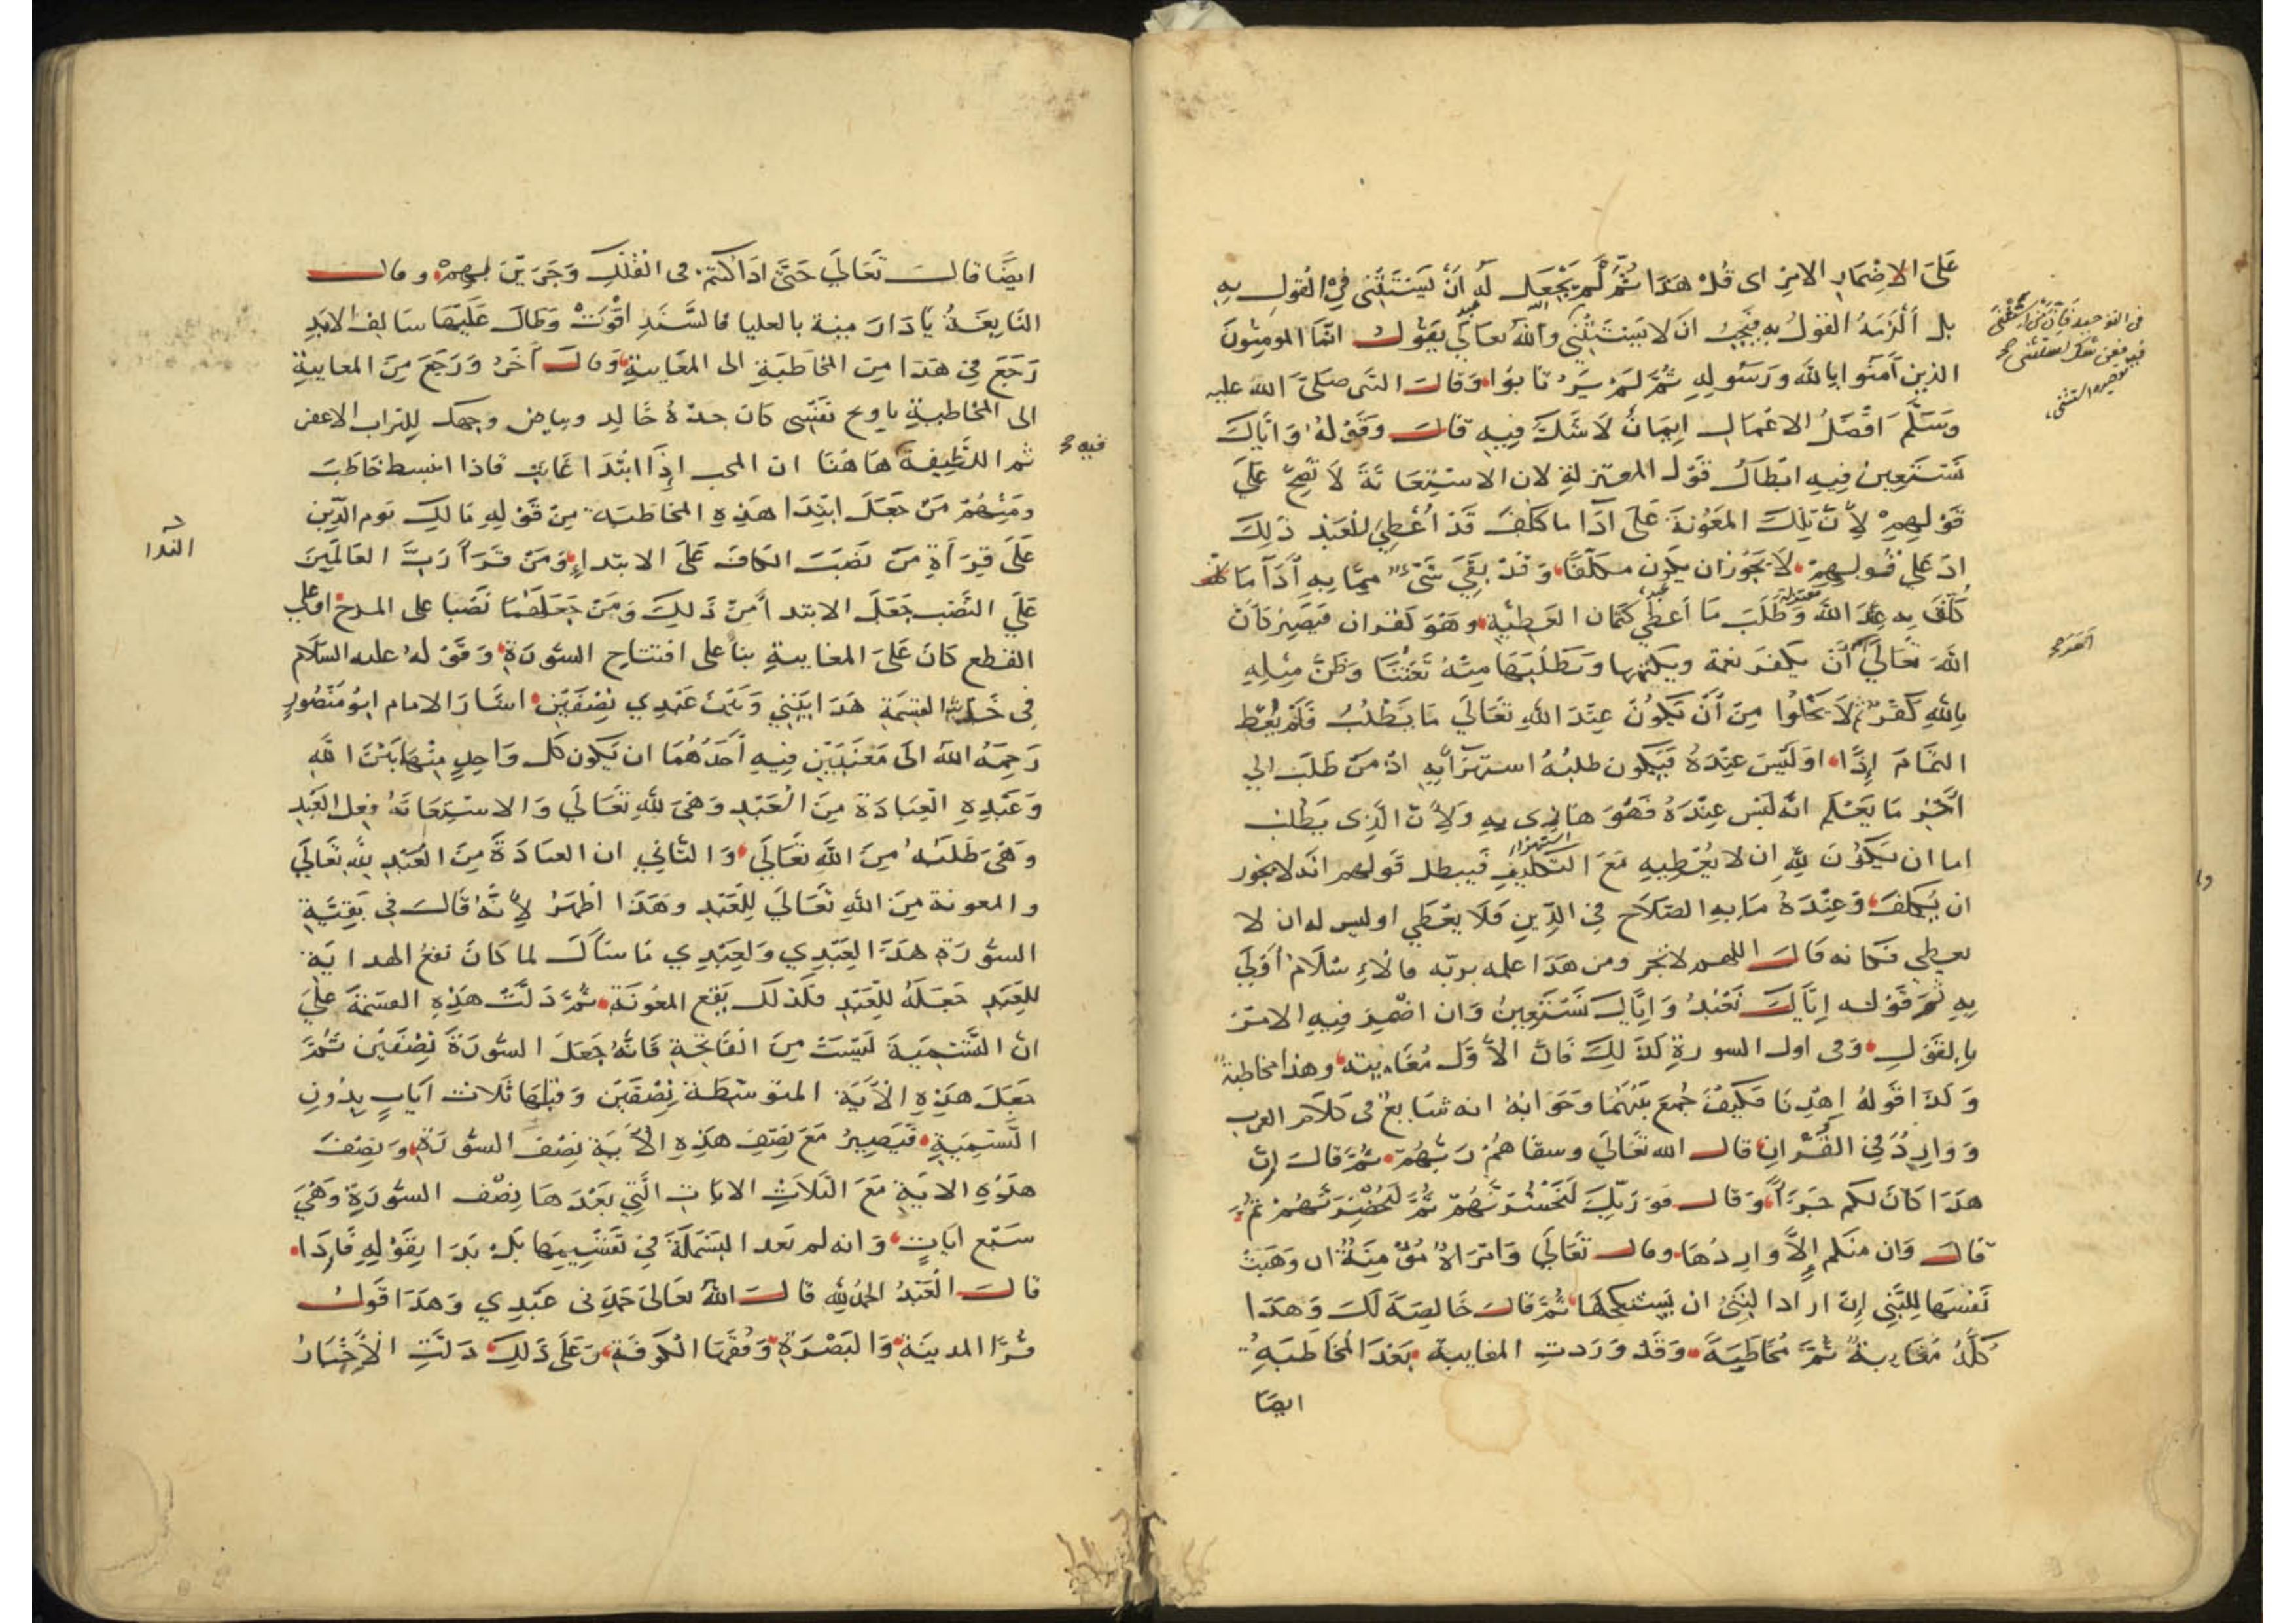 عَلَى الاِضْمَارِ الامِرْ اى قُلْ هَذَا ثُمَّ لَمْ يَجْعَل لَهُ اَنْ يَسْتَثْنِى فِى القَولِ بِهِ
بل اَلْزَمَهُ القَولُ بِهِ فيجِبُ انْ لا يَسْتَثْنِى واللّٰه تعالى يَقُولُ انّمَا المومنُونَ
الذين آمَنُوا باللّٰه وَرَسُولِهِ ثُمَّ لَمْ يَرْتَابُوا وَقَالَ النبى صَلىَّ اللّٰه عليه
وَسَلَّمَ اَفْضَلُ الاعْمَالِ اِيمَانٌ لَا شَكَّ فِيهِ قالَ وقَولهُ وَاِيَّاكَ
نَسْتَعِينُ فِيهِ ابْطالُ قَوْل المعتزلةِ لان الاسْتِعَانَةَ لَا تَصِحّ عَلَى
قَولِهِمْ لِأنّ تِلكَ المَعُونَةَ عَلىَ اَدَا ما كلّفَ قَدْ اُعْطِىَ للعَبْدِ ذَلِكَ
اذ عَلى قولِهِمْ لَا يَجُوز ان يكون مكلّفًا وَقَدْ بَقِىَ شَىْءٌ مِمّا بِهِ اَدَآ مَا
كُلّفَ بِهِ عِنْدَ اللّٰه وَطَلَبَ مَا اُعطِىَ كتمان العَطِيّةِ وهُوَ كفران فَيَصِيرُ كَاَنّ
اللّٰهَ تَعَالىَ اَمَرَ اَنْ يكفرَ نعمه ويكتمها وَيَطْلُبَهَا مِنْهُ تَعَنُّتًا وَظَنّ مِثلِهِ
بِاللّٰهِ كُفْرٌ ثم لَا يَخْلُوا مِنْ اَنْ يَكُونَ عِنْدَ اللّٰهِ تَعَالَى مَا يَطْلُبُ فَلَمْ يُعْطِ
التمَامَ اِذًا اوَلَيْسَ عِنْدَهُ فَيَكُون طلبُهُ استهزأً بِهِ اذْ مَنْ طَلَبَ الى
آخَرَ مَا يَعْلَم انّه لَيْسَ عِنْدَهُ فَهُوَ هَازى بِهِ وَلِأنّ الذى يَطلب
اما ان يَكُونَ لِلّٰهِ ان لا يُعْطِيهِ مَعَ التكليفِ فَيبطل قَولهم انّه لا يجوز
ان يُكَلفَ وَعِنْدَهُ مَا بِهِ الصّلاَح فِى الدّينِ فَلَا يُعْطَى اوليس له ان لا
يعطى فكانه قَالَ اللّهم لا تجر ومن هَذَا علمه بربّه فالاِسْلَامُ اَوْلَى
بِهِ ثم قَوْله اِيَّاكَ نَعْبُدُ وَاِيَّاكَ نَسْتَعِينُ وَان اضْمِرَ فِيهِ الامرُ
بِالقَوْلِ وَفى اول السورةِ كَذَلِكَ فَانّ الأوّلَ مُغَايبَه وهذا مخاطبة
وَكَذَا قَولهُ اِهْدِنَا فَكَيْفَ جُمِعَ بَيْنَهُمَا وَجَوَابُهُ انه شَايعٌ فى كَلَام العرب
وَوَارِدٌ فِى القُرْانِ قالَ اللّٰه تَعَالَى وسقَاهُمْ رَبُّهُمْ ثُمّ قالَ اِنّ
هَذَا كَانَ لكم جَزَآءً وَقَالَ فَوَرَبِّكَ لَنَحْشُرَنّهُمْ ثُمَّ لَنُحْضِرَنّهُمْ ثُمّ
قالَ وَان منكم اِلّا وَارِدُهَا وقالَ تَعَالَى وَامْرَاةً مُؤْمِنَةً ان وَهَبَتْ
نَفْسَهَا لِلنَّبِى اِنْ ارادا لنبّىُ ان يَسْتَنكِحَهَا ثُمَّ قالَ خَالِصَةً لَكَ وَهَذَا
كُلُّهُ مُغَايبةٌ ثُمَّ مُخَاطَبَةٌ وَقَدْ وَرَدتِ المغايبة بَعْدَ المُخَاطَبَةِ
ايضا
فى التوحيد فان من استثنى
القدر
ايضًا قالَ تَعَالَى حَتّى اذا كنتم فى الفُلْكِ وَجَرَيْنَ بِهِمْ وقالَ
النَّابِغَةُ يَا دَارَ ميّة بالعليا فالسَّنَدِ اقْوَتْ وَطَالَ عَلَيْهَا سَالِفُ الابَدِ
رَجَعَ فِى هَذَا مِنَ المُخَاطَبَةِ الى المُغَايبةِ وَقالَ آخَرُ وَرَجَعَ مِنَ المغايبةِ
الى المُخَاطبةِ ياويح نَفْسِى كَانَ جدّةُ خَالِدٍ وبياض وجهك لِلتراب الاعفر
ثم اللّطِيفَة هَاهُنَا ان المحب اِذَا ابْتَدَا غَايبَ فاذا انبسط خاطَبَ
ومِنْهُمْ مَنْ جَعَلَ ابتِدَا هَذِهِ المخاطبَه مِنْ قَوْلِهِ مَالِكِ يَوم الدّينِ
عَلَى قِرَآةِ مَنْ نَصَبَ الكافَ عَلىَ الابتداءِ وَمَنْ قَرَأ رَبَّ العَالَمِينَ
عَلَى النَّصْب جَعَلَ الابتدا مِنْ ذَلِكَ وَمَنْ جَعَلهُمَا نَصْبا على المدح او على
القطع كَانَ عَلَى المغايبةِ بنا على افتتاح السُّورَةِ وَقَوْلهُ عليه السَّلَام
فِى حديث القسْمَةِ هَذَا بَيْنِى وَبَيْنَ عَبْدِى نِصْفَيْنِ اشَارَ الامام ابومَنْصُورٍ
رَحِمَهُ اللّٰه الىَ مَعْنَيَيْنِ فِيهِ اَحَدُهُمَا ان يَكون كل وَاحِدٍ مِنْهَا بَيْنَ اللّٰهِ
وَعَبْدِهِ العِبَادَة مِنَ العَبْدِ وَهْىَ لِلّٰهِ تَعَالَى وَالاسْتِعَانَةُ فِعل العَبْدِ
وهْىَ طَلَبُهُ مِنَ اللّٰهِ تَعَالَى وَالثّانِى ان العبادَةَ مِنَ العَبْدِ لِلّٰهِ تَعَالَى
والمعونة مِنَ اللّٰهِ تَعَالَى لِلْعَبْدِ وهَذَا اظْهَرُ لِأنّهُ قالَ فِى بَقِيّةِ
السُّورَةِ هَذَا لِعَبْدِى وَلِعَبْدِى مَا سَاَلَ لما كَانَ نفعُ الهدايَةِ
لِلْعَبْدِ جَعَلَهُ لِلْعَبْدِ فكذلك يَقَع المعُونَة ثُمَّ دَلّتْ هَذِهِ القسْمَة عَلَى
انّ التَّسْمِيَةَ لَيْسَتْ مِنَ الفَاتِحَةِ فَانَّهُ جَعَلَ السُّورَةَ نِصْفَيْنِ ثُمَّ
جَعَلَ هَذِهِ الآيَةَ المتوسّطَةَ نِصْفَيْنِ وَقبلهَا ثَلَاث اَيَاتٍ بِدُونِ
التَّسْمِيَةِ فَيَصِيرُ مَعَ نِصْفِ هَذِهِ الآيَةِ نِصْف السُّورَةِ وَنِصْفُ
هذِهِ الايَةِ مَعَ الثلَاثِ الايَاتِ الَّتِى بَعْدَهَا نِصْف السُّورَةِ وَهْىَ
سَبْع ايَاتٍ وَانه لم تعد البَسْمَلَةَ فِى تَقْسِيمِهَا بَلْ بَدَا بِقَوْلِهِ فَاِذَا
قالَ العَبْدُ الحمْدُ لِلّٰهِ قالَ اللّٰهُ تعالىَ حَمِدَنى عَبْدِى وَهَذَا قَولُ
قُرّا المدينَةِ وَالبَصْرَةِ وَفُقَهَا الكوفَةِ وَعَلَى ذَلِكَ دَلّتِ الأخْبَارُ
فيه